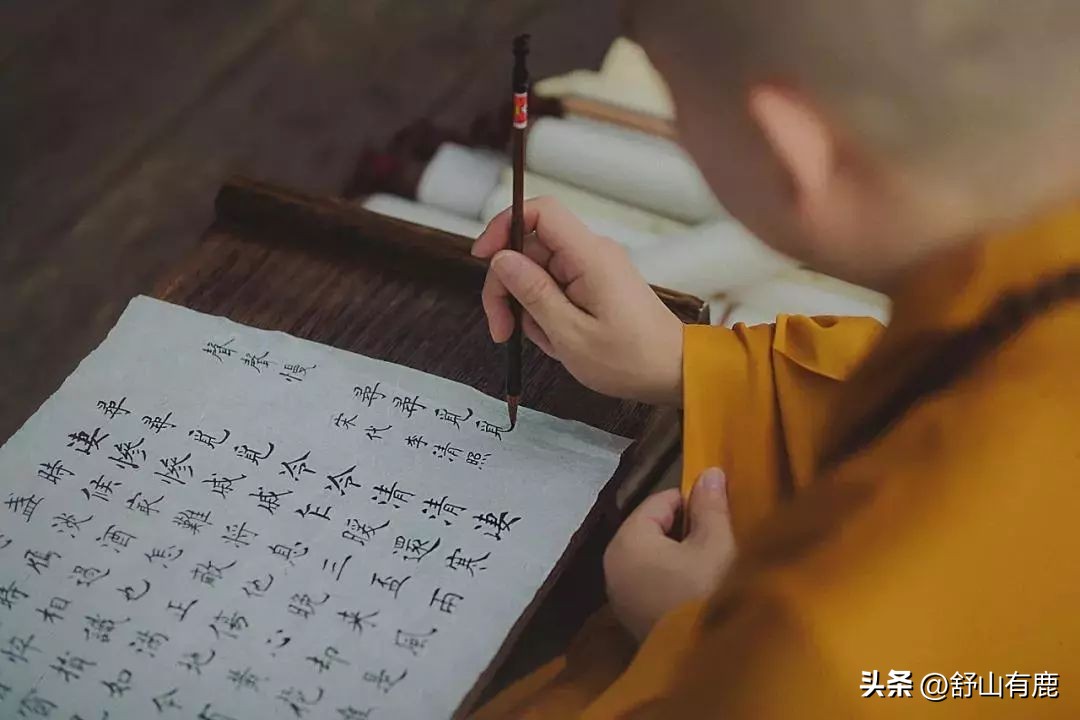 聲聲慢 尋尋覓覓
宋代 李清照
尋尋覓覓冷冷清清凄
凄慘慘戚戚乍暖還寒
時候最難將息三盃兩
盞淡酒怎敵他晚來風
雁過也正傷心却是
時相識滿地黃花堆
悴損如今有
窗
头条 @舒山有鹿